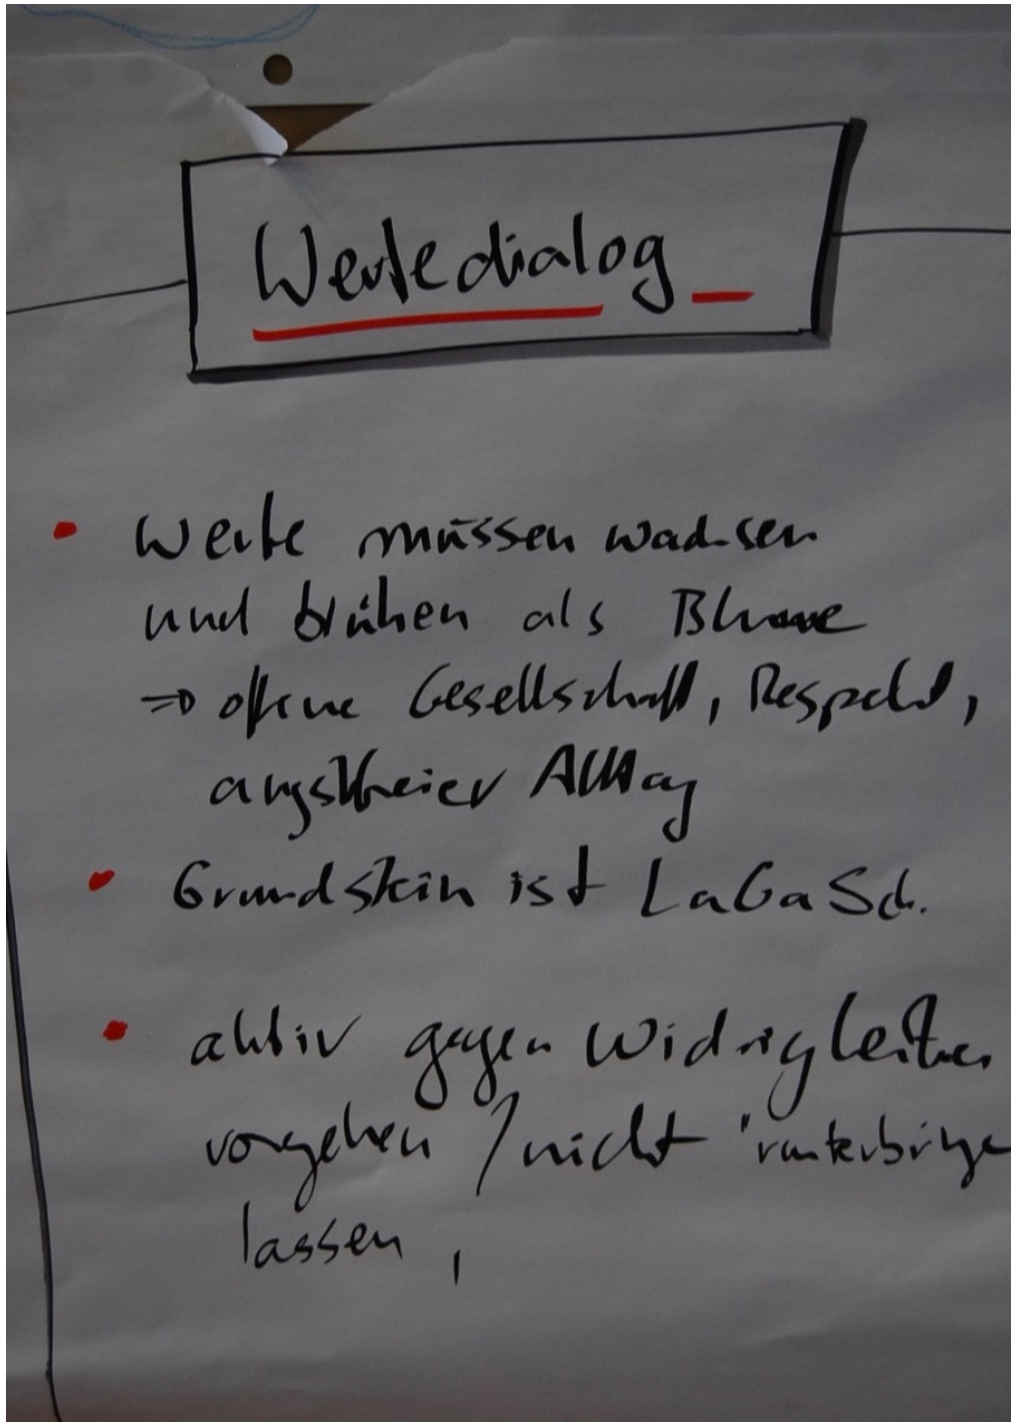 Wertedialog
• Werte müssen wachsen
und blühen als Blume
⇒ offene Gesellschaft, Respekt,
angstfreier Alltag
• Grundstein ist LaGaSch.
• aktiv gegen Widrigkeiten
vorgehen / nicht 'runterbringe
lassen,